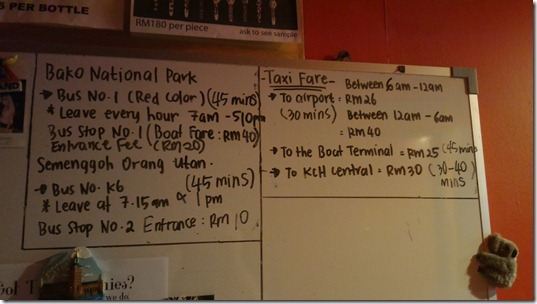 5 PER BOTTLE
RM180 per piece
ask to see sample
Bako National Park
→ Bus No.1 (Red Color) (45 mins)
* Leave every hour 7am - 5/6pm
Bus Stop No.1 (Boat Fare: RM40)
Entrance Fee (RM20)
Semenggoh Orang Utan.
→ Bus No. K6 (45 mins)
* Leave at 7.15am & 1pm
Bus Stop No.2 Entrance: RM 10
- Taxi Fare - Between 6am - 12am
→ To airport = RM26
(30 mins) Between 12am - 6am
= RM40
→ To the Boat Terminal = RM25 (45 mins)
→ To KCH Central = RM30 (30-40 mins)